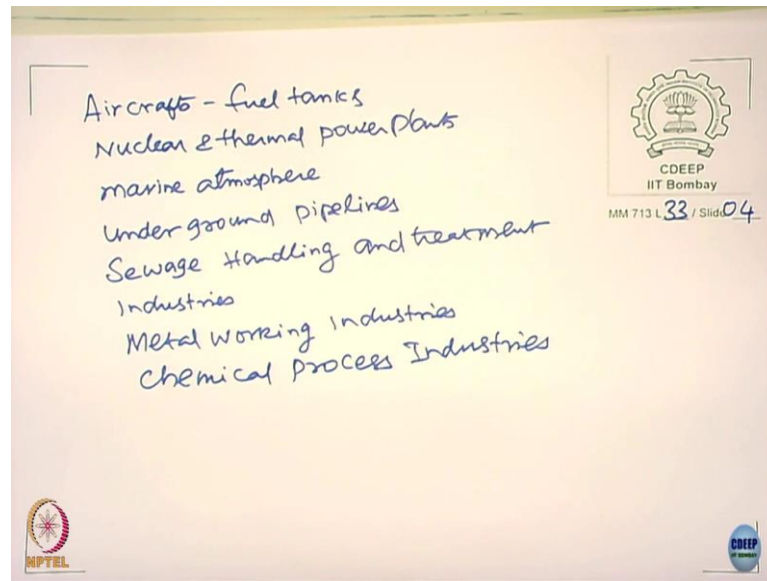 Aircrafts - fuel tanks
Nuclear & thermal power plants
marine atmosphere
underground pipelines
Sewage Handling and treatment
Industries
Metal working industries
Chemical Process Industries
CDEEP
IIT Bombay
MM 713 L 33 / Slide 04
NPTEL
CDEEP
IIT BOMBAY